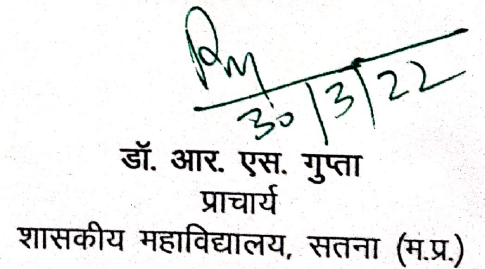 30/3/22
डॉ. आर. एस. गुप्ता
प्राचार्य
शासकीय महाविद्यालय, सतना (म.प्र.)